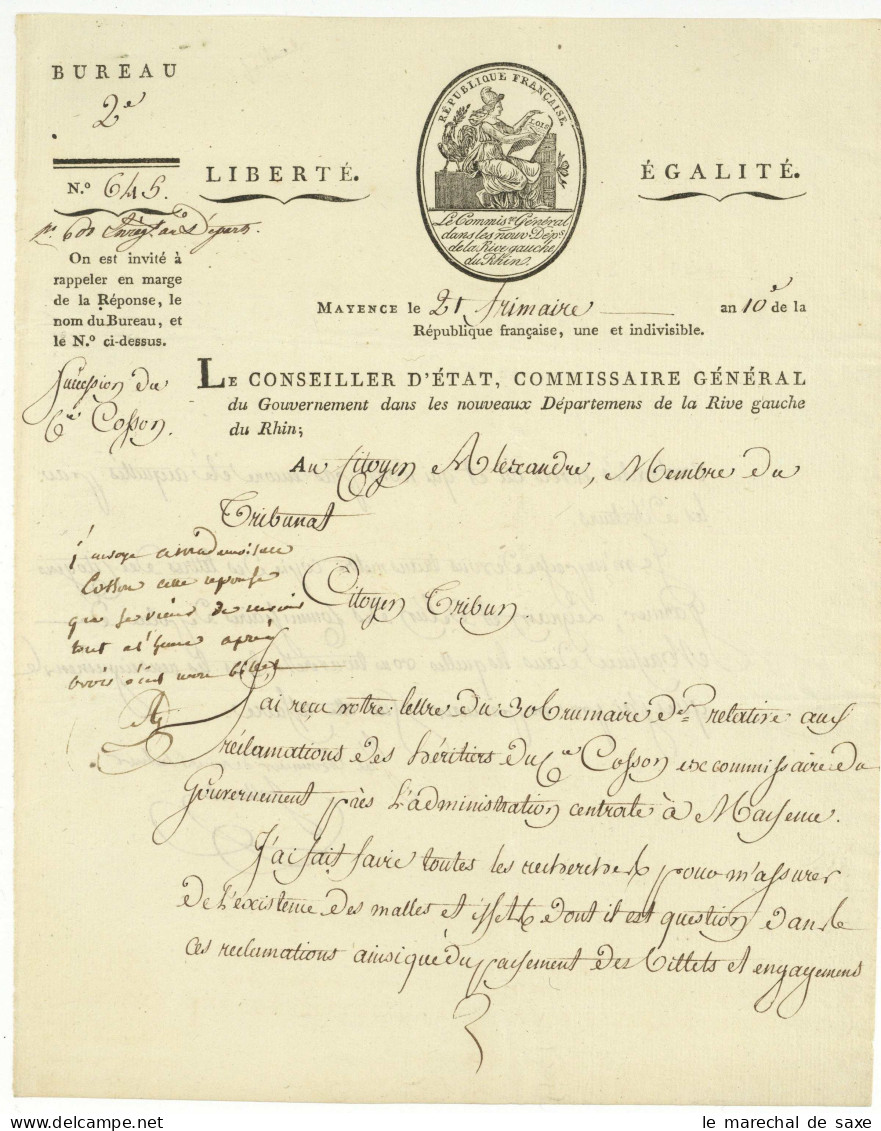 BUREAU
2e
N.º 645.
On est invité à
rappeler en marge
de la Réponse, le
nom du Bureau, et
le N.º ci-dessus.
LIBERTÉ.
RÉPUBLIQUE FRANÇAISE.
LOIS
Le Commis.re Général
dans les nouv. Dép.s
de la Rive gauche
du Rhin.
ÉGALITÉ.
MAYENCE le 21 frimaire an 10e de la
République française, une et indivisible.
Succession du
Cen Cosson.
LE CONSEILLER D'ÉTAT, COMMISSAIRE GÉNÉRAL
du Gouvernement dans les nouveaux Départemens de la Rive gauche
du Rhin;
Au Citoyen Alexandre, Membre du
Tribunat
j'envoye a mademoiselle
Cosson cette reponse
que je viens de recevoir
tout a l'heure après
avoir écrit mon billet
Citoyen Tribun.
J'ai reçu votre lettre du 30 brumaire der relative aux
réclamations des héritiers du Cen Cosson ex commissaire du
Gouvernement près l'administration centrale à Mayence.
J'ai fait faire toutes les recherches pour m'assurer
de l'existence des malles et effets dont il est question dans
ces reclamations ainsi que du payement des billets et engagemens
le marechal de saxe